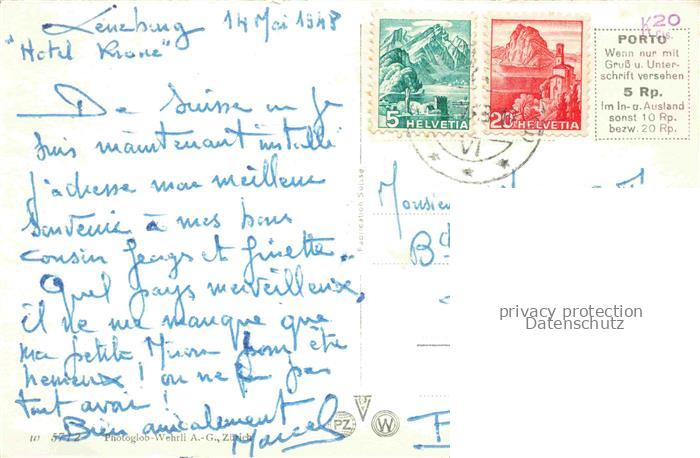 Lenzburg 14 Mai 1948
"Hotel Krone"
De Suisse où je
suis maintenant installé
j'adresse mon meilleur
souvenir à mes bons
cousin Georges et Ginette.
Quel pays merveilleux,
il ne me manque que
ma petite pour être
heureux ! on ne peut pas
tout avoir !
Bien amicalement
Marcel
W 5712 Photoglob-Wehrli A.-G., Zürich
PZ W
Fabrication Suisse
5 HELVETIA
20 HELVETIA
VI
K 20
PORTO
Wenn nur mit
Gruß u. Unter-
schrift versehen
5 Rp.
Im In- u. Ausland
sonst 10 Rp.
bezw. 20 Rp.
Monsieur
Bd
privacy protection
Datenschutz
F